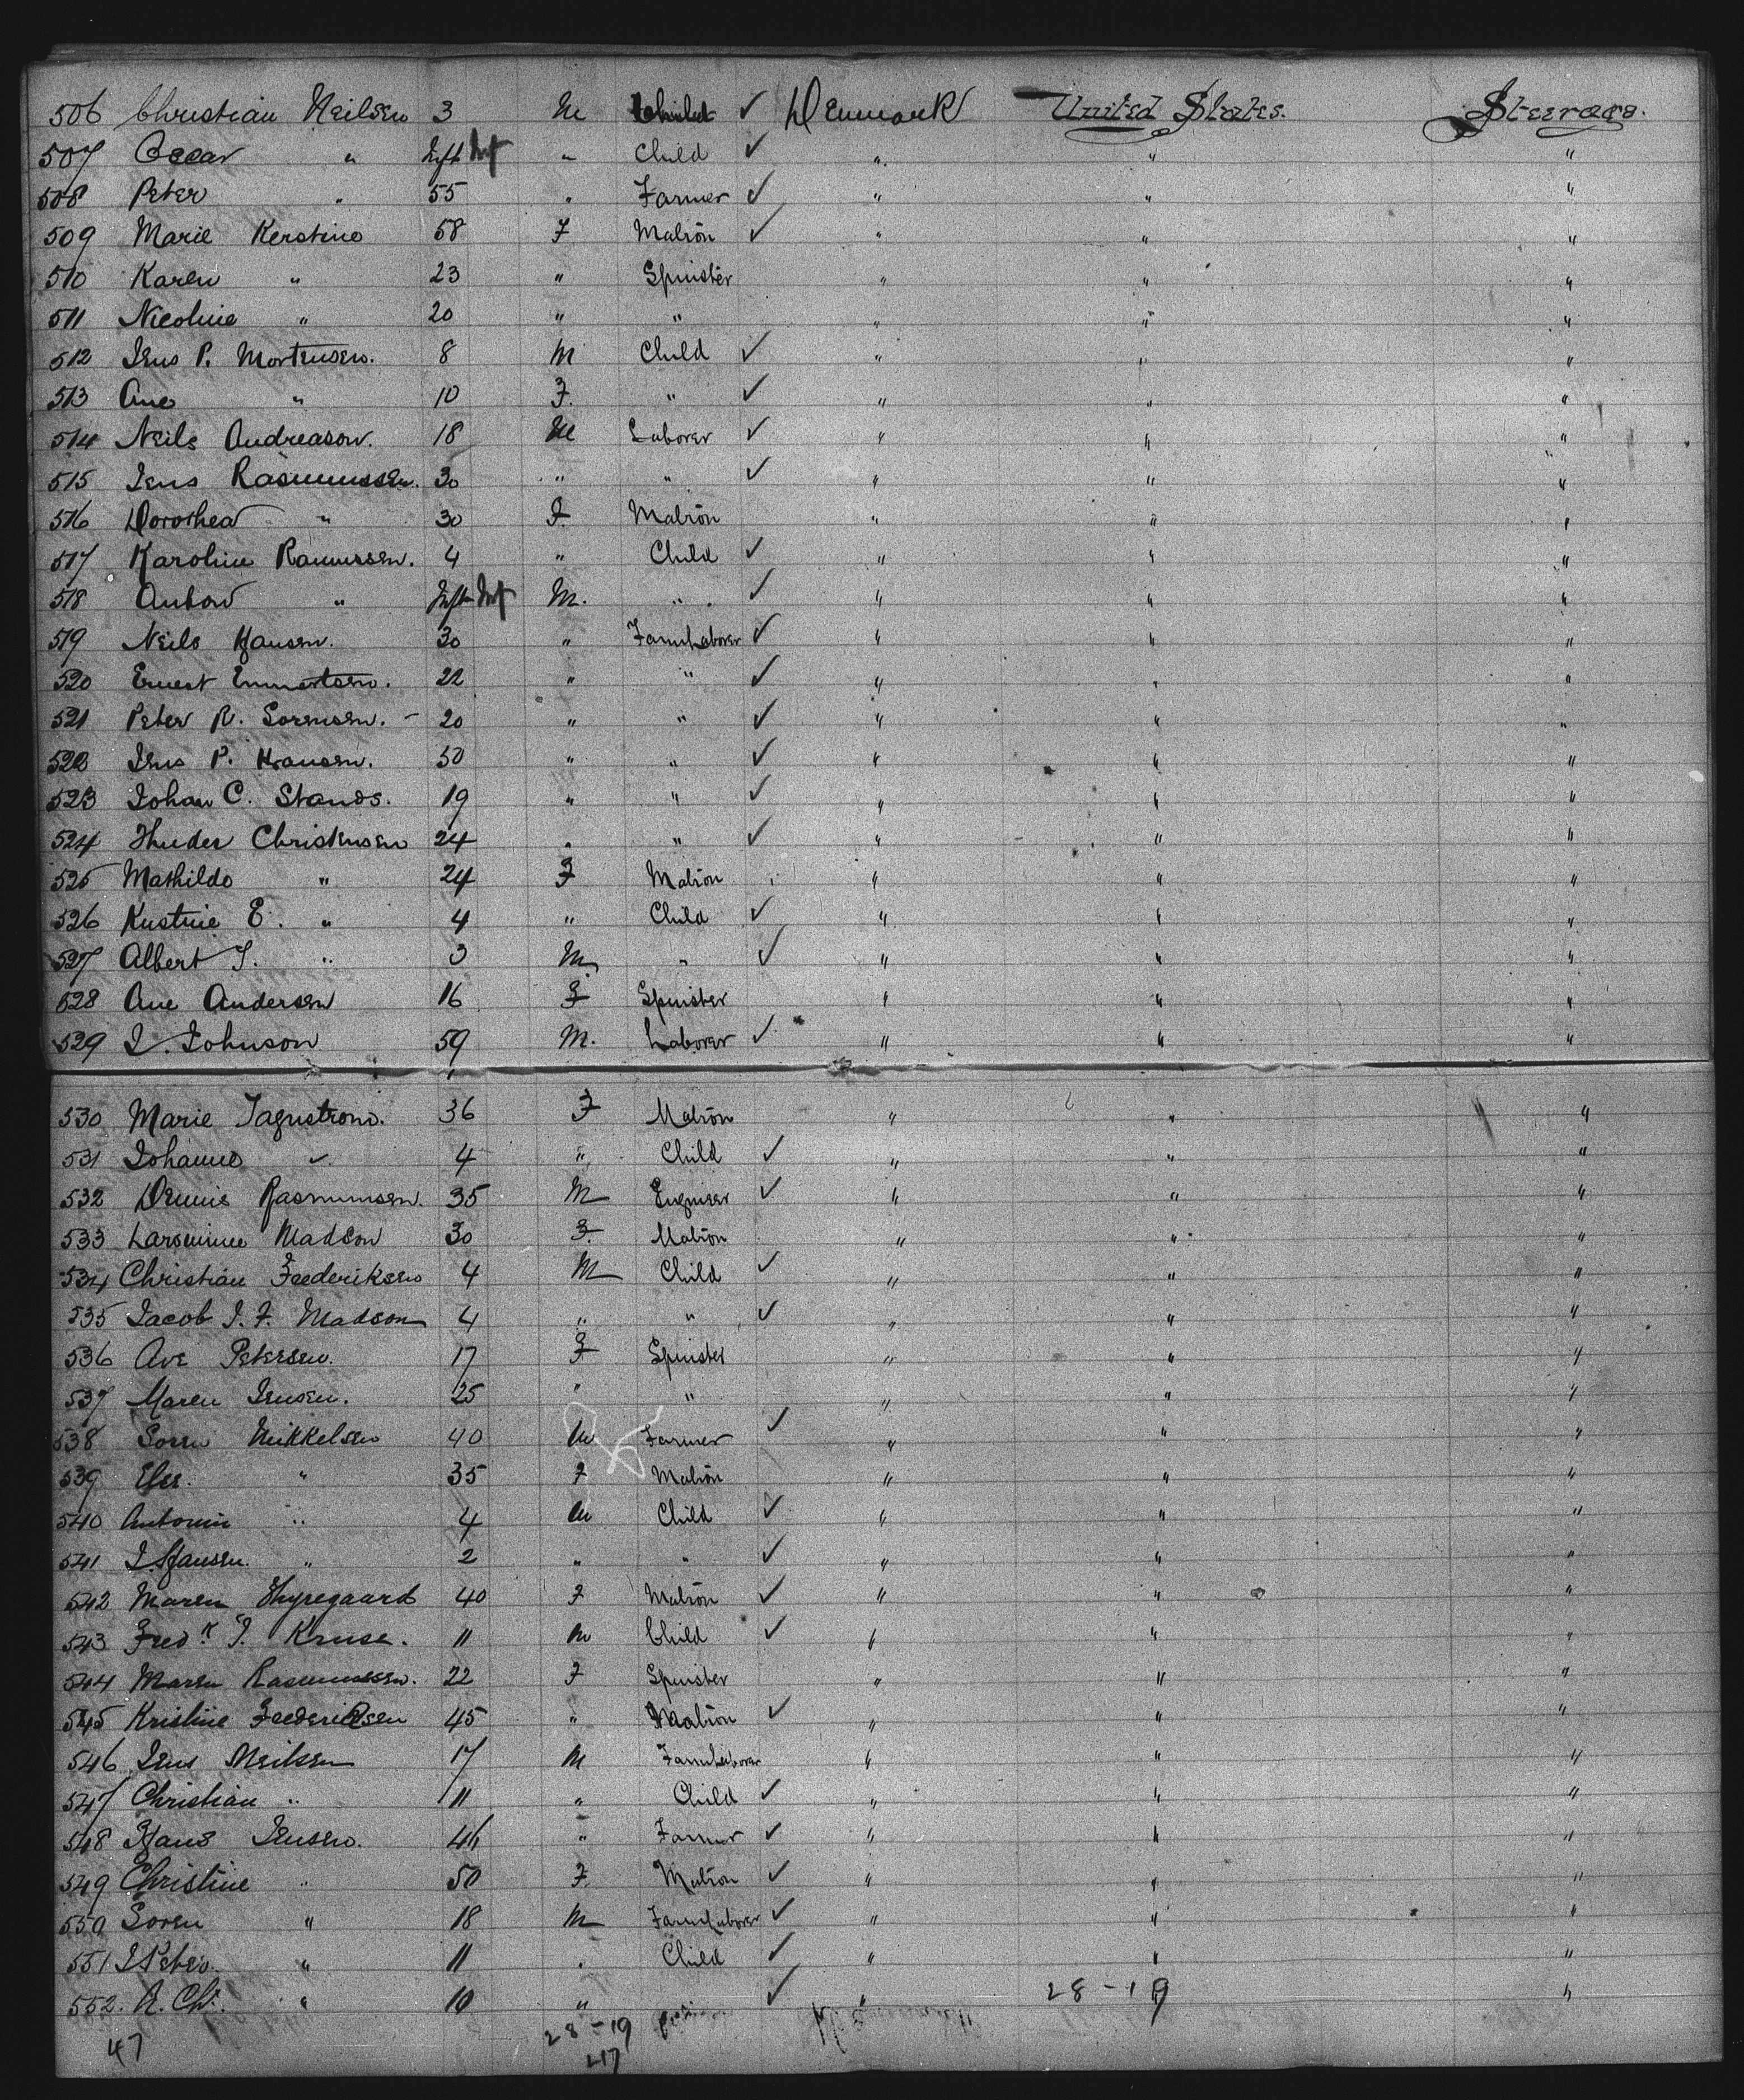 506 Christian Neilsen 3 M Child ✓ Denmark United States. Steerage.
507 Oscar " Inft Inf " Child ✓ " " "
508 Peter " 55 " Farmer ✓ " " "
509 Marie Kerstine 58 F Matron ✓ " " "
510 Karen " 23 " Spinster " " "
511 Nicoline " 20 " " " " "
512 Jens P. Mortensen. 8 M Child ✓ " " "
513 Ane " 10 F. " ✓ " " "
514 Neils Andreason. 18 M Laborer ✓ " " "
515 Jens Rasmussen. 30 " " ✓ " " "
516 Dorothea " 30 F. Matron " " "
517 Karoline Ramussen. 4 " Child ✓ " " "
518 Anton " Inft Inf M. " ✓ " " "
519 Neils Hansen. 30 " Farm Laborer ✓ " " "
520 Ernest Emmertsen. 22 " " ✓ " " "
521 Peter R. Sorensen. - 20 " " ✓ " " "
522 Jens P. Hansen. 50 " " ✓ " " "
523 Johan C. Stands. 19 " " ✓ " " "
524 Thuder Christensen 24 " " ✓ " " "
525 Mathilde " 24 F Matron " " "
526 Kustine E. " 4 " Child ✓ " " "
527 Albert J. " 3 M " ✓ " " "
528 Ane Andersen 16 F Spinster " " "
529 J. Johnson 59 M. Laborer ✓ " " "
530 Marie Jagustrom. 36 F Matron " " "
531 Johanne " 4 " Child ✓ " " "
532 Dennis Rasmumsen. 35 M Engineer ✓ " " "
533 Larsmine Madson 30 F. Matron " " "
534 Christian Frederiksen 4 M Child ✓ " " "
535 Jacob J. F. Madson 4 " " ✓ " " "
536 Ave Petersen. 17 F Spinster " " "
537 Maren Jensen. 25 " " " " "
538 Soren Mikkelsen 40 M Farmer ✓ " " "
539 Else. " 35 F Matron " " "
540 Antonin " 4 M Child ✓ " " "
541 J. Hansen. " 2 " " ✓ " " "
542 Maren Thyregaard 40 F Matron ✓ " " "
543 Fredk. J. Kruse. 11 M Child ✓ " " "
544 Maren Rasmussen. 22 F Spinster " " "
545 Kristine Frederiksen 45 " Matron ✓ " " "
546 Jens Neilsen 17 M Farm Laborer " " "
547 Christian " 11 " Child ✓ " " "
548 Hans Jensen. 46 " Farmer ✓ " " "
549 Christine " 50 F. Matron ✓ " " "
550 Soren " 18 M Farm Laborer ✓ " " "
551 J Peter. " 11 " Child ✓ " " "
552. A. Ch. " 10 " ✓ " 28-19 "
47 28-19
47